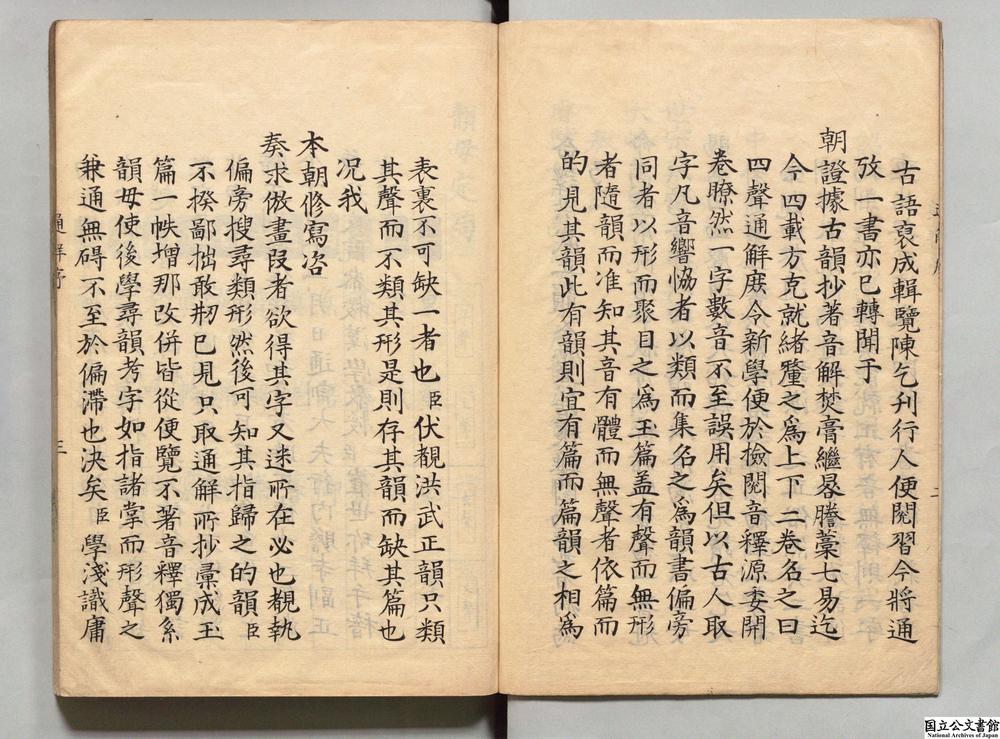 古語裒成輯覽陳乞刊行人便閱習今將通
攷一書亦已轉聞于
朝證據古韻抄著音解焚膏繼晷謄藁七易迄
今四載方克就緒釐之爲上下二卷名之曰
四聲通解庶令新學便於檢閱音釋源委開
卷瞭然一字數音不至誤用矣但以古人取
字凡音響恊者以類而集名之爲韻書偏旁
同者以形而聚目之爲玉篇盖有聲而無形
者隨韻而准知其音有體而無聲者依篇而
的見其韻此有韻則宜有篇而篇韻之相爲
表裏不可缺一者也臣伏覩洪武正韻只類
其聲而不類其形是則存其韻而缺其篇也
况我
本朝修寫咨
奏求倣畫段者欲得其字又迷所在必也覩執
偏旁搜尋類形然後可知其指歸之的韻臣
不揆鄙拙敢刱已見只取通解所抄彙成玉
篇一帙增那改併皆從便覽不著音釋獨系
韻母使後學尋韻考字如指諸掌而形聲之
兼通無碍不至於偏滯也决矣臣學淺識庸
通解序
三
国立公文書館
National Archives of Japan